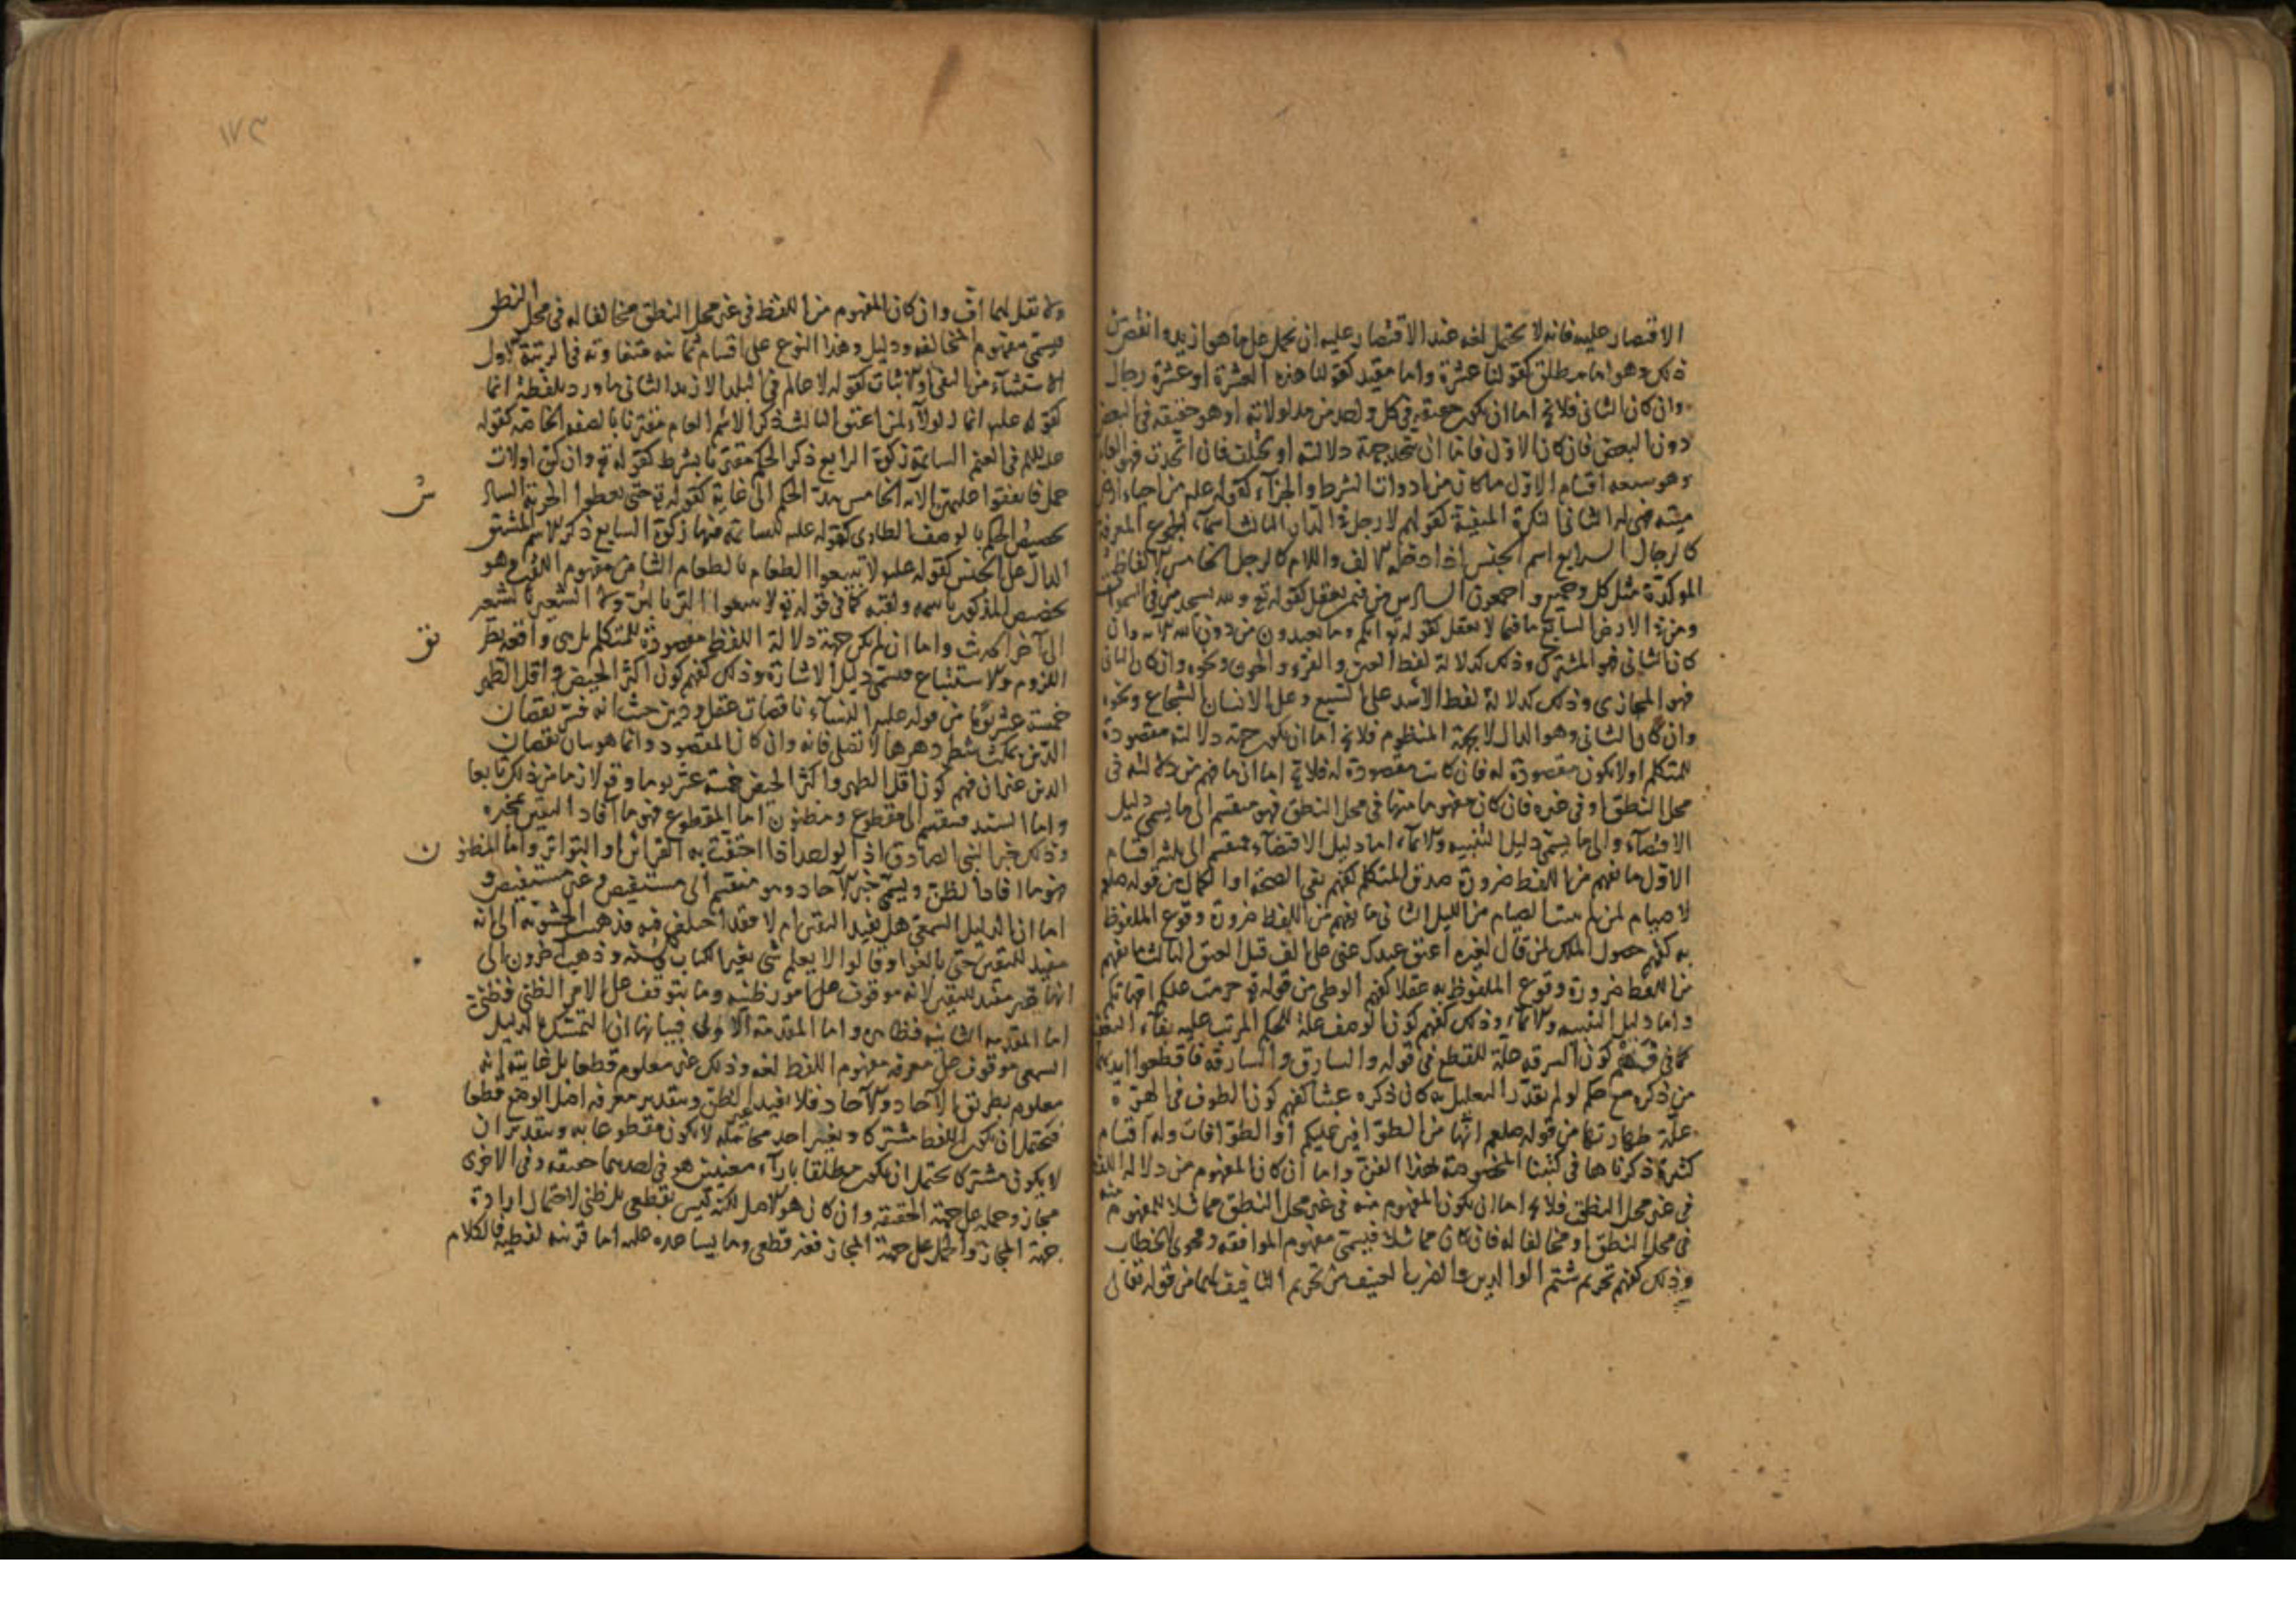 الاقتصار عليه فانه لا يحتمل لغه عند الاقتصار عليه ان يحمل على ما هو ازيد و انقص من
ذلك وهو اما مطلق كقولنا عشرة واما مقيد كقولنا هذه العشرة او عشرة رجال
وان كان الثانى فلا يخ اما ان يكون حقيقه فى كل واحد من مدلولاته او هو حقيقه فى البعض
دون البعض فان كان الاول فاما ان يتحد جهة دلالته او يختلف فان اتحدت فهو العام
وهو سبعه اقسام الاول ما كان من ادوات الشرط والجزآء كقوله علم من احياء ارض
ميته فهى له الثانى النكرة المنفية كقولهم لا رجل فى الدار الثالث اسمآء الجموع المعرفة
كالرجال الرابع اسم الجنس اذا دخله الالف واللام كالرجل الخامس الالفاظ
الموكدة مثل كل وجميع و اجمعون السادس من فيمن يعقل كقوله تع و لله يسجد من فى السموات
ومن فى الارض السابع ما فيما لا يعقل كقوله تع انكم وما تعبدون من دون الله الآيه وان
كان الثانى فهو المشترك وذلك كدلالة لفظ العين و القرء و الجون ونحوه وان كان الثانى
فهو المجازى وذلك كدلالة لفظ الاسد على السبع وعلى الانسان الشجاع ونحوه
وان كان الثانى وهو الدال لا بجهة المنظوم فلا يخ اما ان يكون جهة دلالته مقصودة
للمتكلم او لا يكون مقصودة له فان كانت مقصودة له فلا يخ اما ان ما فهم من دلالته فى
محل النطق او فى غيره فان كان مفهوما منها فى محل النطق فهو منقسم الى ما يسمى دليل
الاقتضآء والى ما يسمى دليل التنبيه والايمآء اما دليل الاقتضآء فمنقسم الى ثلثه اقسام
الاول ما يفهم من اللفظ ضرورة صدق المتكلم كفهم نفى الصحة او الكمال من قوله صلعم
لا صيام لمن لم يبيت الصيام من الليل الثانى ما يفهم من اللفظ ضرورة وقوع الملفوظ
به كفهم حصول الملك لمن قال لغيره اعتق عبدك عنى على الف قبل العتق الثالث ما يفهم
من اللفظ ضرورة وقوع الملفوظ به عقلا كفهم الوطى من قوله تع حرمت عليكم امهاتكم
واما دليل التنبيه والايمآء وذلك كفهم كون الوصف علة للحكم المرتب عليه بفآء التعقيب
كما فى فهم كون السرقه علة للقطع فى قوله والسارق والسارقة فاقطعوا ايديهما
من ذكره مع حكم لو لم يقدر التعليل به كان ذكره عبثا كفهم كون الطوف فى الهرة
علة طهارتها من قوله صلعم انها من الطوافين عليكم او الطوافات وله اقسام
كثيرة ذكرناها فى كتبنا المخصوصة بهذا الفن واما ان كان المفهوم من دلالة اللفظ
فى غير محل النطق فلا يخ اما ان يكون المفهوم منه فى غير محل النطق مماثلا للمفهوم منه
فى محل النطق او مخالفا له فان كان مماثلا فيسمى مفهوم الموافقه وفحوى الخطاب
وذلك كفهم تحريم شتم الوالدين والضرب العنيف من تحريم التافيف لهما من قوله تعالى
ولا تقل لهما اف وان كان المفهوم من اللفظ فى غير محل النطق مخالفا له فى محل النطق
فيسمى مفهوم المخالفه ودليل وهذا النوع على اقسام ثمانيه متفاوته فى الرتبة الاول
الاستثناء من النفى والاثبات كقوله لا عالم فى البلد الا زيد الثانى ما ورد بلفظة انما
كقوله علم انما الولآء لمن اعتق الثالث ذكر الاسم العام مقترنا بالصفه الخاصه كقوله
علم فى الغنم السائمة زكوة الرابع ذكر الحكم مقترنا بشرط كقوله تع وان كن اولات
حمل فانفقوا عليهن الآيه الخامس مد الحكم الى غاية كقوله تع حتى يعطوا الجزية السادس
تخصيص الحكم بالوصف الطارى كقوله علم السائمه فيها زكوة السابع ذكر الاسم المشتق
الدال على الجنس كقوله علم ولا تبيعوا الطعام بالطعام الثامن مفهوم اللقب وهو
تخصيص المذكور باسمه ولقبه كما فى قوله لا تبيعوا البر بالبر ولا الشعير بالشعير
الى آخر الحديث واما ان لم يكن جهة دلالة اللفظ مقصودة للمتكلم بل هى واقعه بطريق
اللزوم والاستتباع فيسمى دليل الاشارة وذلك كفهم كون اكثر الحيض واقل الطهر
خمسة عشر يوما من قوله عليه النسآء ناقصات عقل ودين حيث انه فسر نقصان
الدين بمكث شطر دهرها لا تصلى فانه وان كان المقصود وانما هو بيان نقصان
الدين غير ان فهم كون اقل الطهر واكثر الحيض خمسة عشر يوما وقع لازما من ذلك تابعا
واما السند فمنقسم الى مقطوع ومظنون اما المقطوع فهو ما آفاد اليقين بمخبره
وذلك خبر النبى الصادق اذ الواحد اذا احتفت به القرائن او التواتر واما المظنون
فهو ما افاد الظن ويسمى خبر الآحاد وهو منقسم الى مستفيض وغير مستفيض و
اما ان الدليل السمعى هل يفيد اليقين ام لا فقد اختلف فيه فذهب الحشويه الى انه
مفيد لليقين حتى بالغوا وقالوا لا يعلم شى بغير الكتاب والسنه وذهب آخرون الى
انها غير مفيد لليقين لانه موقوف على امور ظنيه وما يتوقف على الامر الظنى فظنى
اما المقدمه الثانيه فظاهر واما المقدمة الاولى فبيانها ان التمسك بالدليل
السمعى موقوف على معرفه مفهوم اللفظ لغه وذلك غير معلوم قطعا بل غايته انه
معلوم بطريق الآحاد والآحاد فلا يفيد غير الظن وبتقدير معرفه اصل الوضع قطعا
فيحتمل ان يكون اللفظ مشتركا وتعين احد محامله لا يكون مقطوعا به وبتقدير ان
لا يكون مشتركا يحتمل ان يكون مطلقا بازآء معنيين هو فى احدهما حقيقه وفى الاخرى
مجاز وحمله على جهة الحقيقه وان كان هو الاصل لكنه ليس بقطعى بل ظنى لاحتمال ارادة
جهة المجاز والحمل على جهة المجاز فغير قطعى وما يساعده عليه اما قرينه لفظيه فالكلام